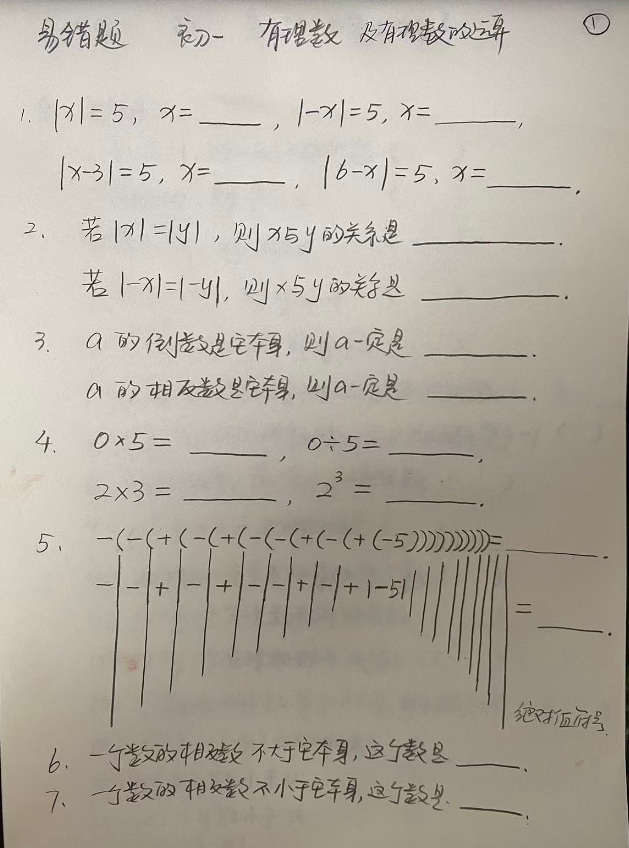 易错题 初一 有理数 及有理数的运算 ①
1. |x|=5, x=____, |-x|=5, x=____,
|x-3|=5, x=____, |6-x|=5, x=____.
2. 若|x|=|y|, 则x与y的关系是____.
若|-x|=|-y|, 则x与y的关系是____.
3. a的倒数是它本身, 则a一定是____.
a的相反数是它本身, 则a一定是____.
4. 0×5=____, 0÷5=____,
2×3=____, 2³=____.
5. -(-(+(-(+(-(-(+(-(+(-5))))))))))=____.
-|-|+|-|+|-|-|+|-|+|-5||||||||||=____.
绝对值符号
6. 一个数的相反数不大于它本身, 这个数是____.
7. 一个数的相反数不小于它本身, 这个数是____.